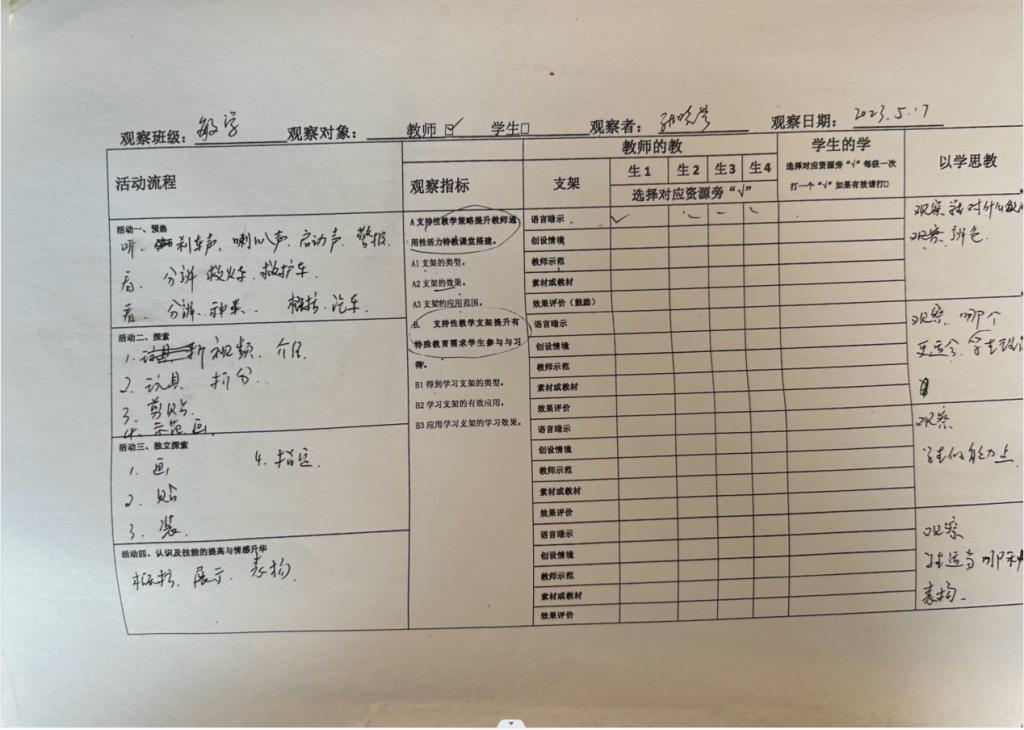 观察班级： 观察对象： 教师☑ 学生□ 观察者： 观察日期：2023.5.17
活动流程
观察指标
支架
教师的教
生1 生2 生3 生4
选择对应资源旁“√”
学生的学
选择对应资源旁“√”每获一次
打一个“√”如果有效请打□
以学思教
活动一、预热
听、刹车声、喇叭声、启动声、警报
看、分辨 救火车、救护车.
看、分辨、种类、 汽车.
活动二、探索
2. 玩具 拆分.
3. 剪贴.
4. 示范画.
活动三、独立探索
1. 画 4. 指定.
2. 贴
3. 装.
活动四、认识及技能的提高与情感升华
展示、表扬
A 支持性教学策略提升教师通
用性活力特教课堂搭建。
A1 支架的类型。
A2 支架的效果。
A3 支架的应用范围。
B. 支持性教学支架提升有
特殊教育需求学生参与与习
得。
B1 得到学习支架的类型。
B2 学习支架的有效应用。
B3 应用学习支架的学习效果。
语言暗示 √
创设情境
教师示范
素材或教材
效果评价（鼓励）
语言暗示
创设情境
教师示范
素材或教材
效果评价
语言暗示
创设情境
教师示范
素材或教材
效果评价
语言暗示
创设情境
教师示范
素材或教材
效果评价
观察 对什么
观察 颜色.
观察 哪个
观察
学生的能力上
观察
学生适当哪种
表扬.